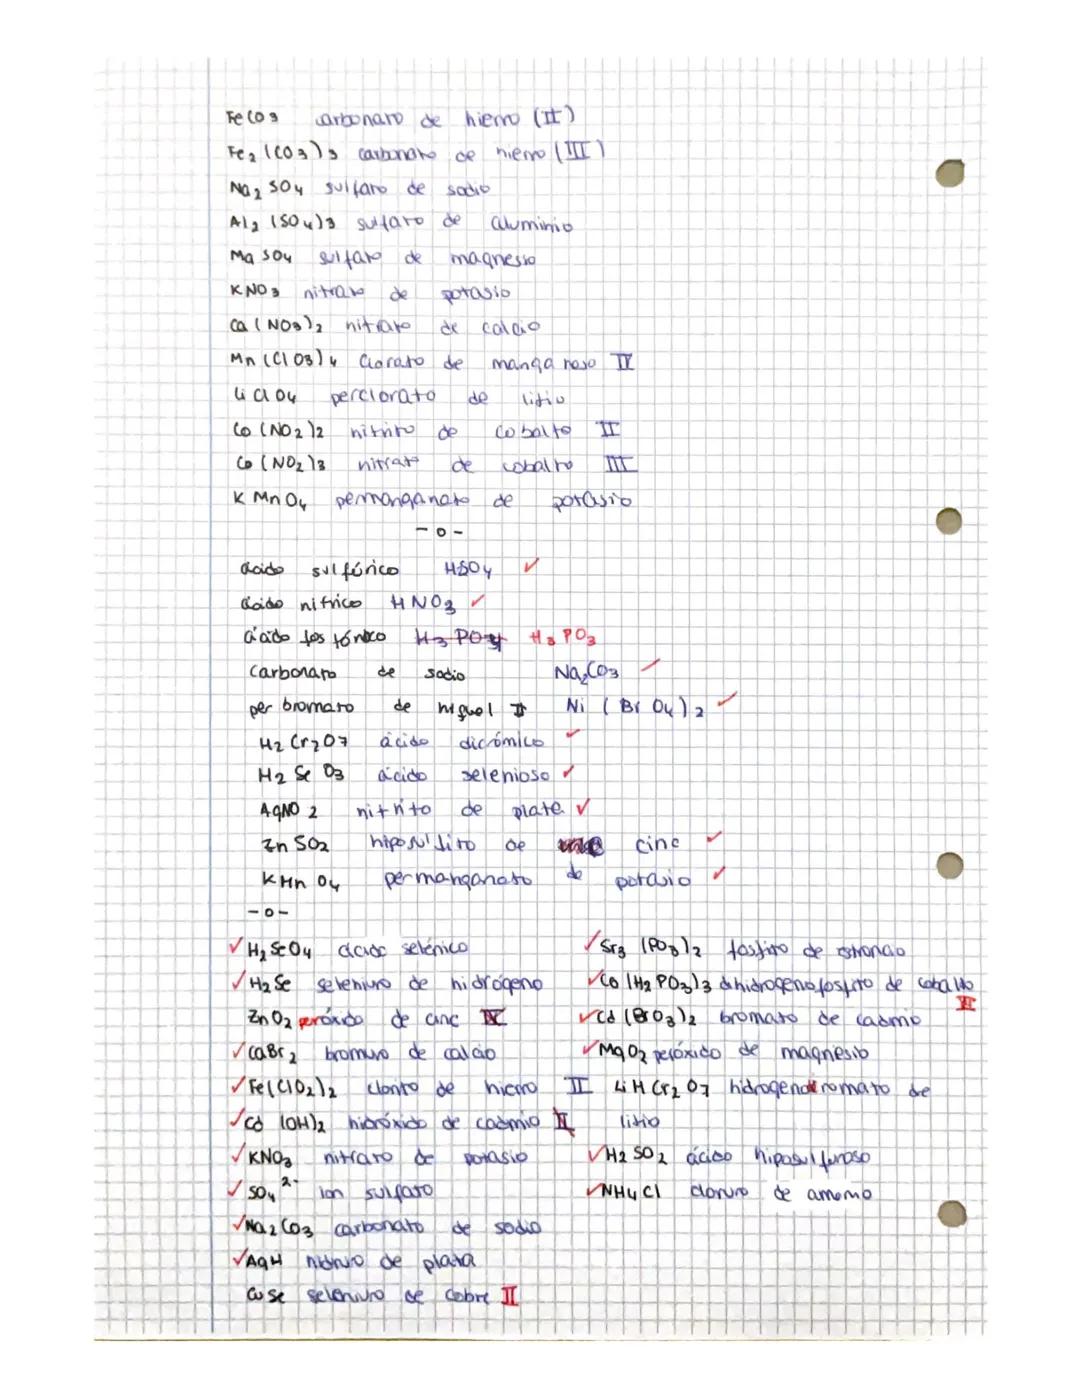 FeCO3 carbonato de hierro (II)
Fe2(CO3)3 carbonato de hierro (III)
Na2SO4 sulfato de sodio
Al2(SO4)3 sulfato de aluminio
MgSO4 sulfato de magnesio
KNO3 nitrato de potasio
Ca(NO3)2 nitrato de calcio
Mn(ClO3)4 clorato de manganeso IV
LiClO4 perclorato de litio
Co(NO2)2 nitrito de cobalto II
Co(NO2)3 nitrato de cobalto III
KMnO4 permanganato de potasio
-o-
ácido sulfúrico H2SO4 ✓
ácido nítrico HNO3 ✓
ácido fosfórico H3PO4 H3PO3
carbonato de sodio Na2CO3 ✓
perbromato de níquel II Ni(BrO4)2 ✓
H2Cr2O7 ácido dicrómico ✓
H2SeO3 ácido selenioso ✓
AgNO2 nitrito de plata ✓
ZnSO2 hiposulfito de cinc ✓
KMnO4 permanganato de potasio ✓
-o-
✓ H2SeO4 ácido selénico
✓ H2Se seleniuro de hidrógeno
ZnO2 peróxido de cinc
✓ CaBr2 bromuro de calcio
✓ Fe(ClO2)2 clorito de hierro II
✓ Cd(OH)2 hidróxido de cadmio
✓ KNO3 nitrato de potasio
✓ SO4 2- ion sulfato
✓ Na2CO3 carbonato de sodio
✓ AgH hidruro de plata
CuSe seleniuro de cobre II
✓ Sr3(PO3)2 fosfito de estroncio
✓ Co(H2PO3)3 dihidrogenofosfito de cobalto III
✓ Cd(BrO3)2 bromato de cadmio
✓ MgO2 peróxido de magnesio
LiHCr2O7 hidrogenodicromato de
litio
✓ H2SO2 ácido hiposulfuroso
✓ NH4Cl cloruro de amonio